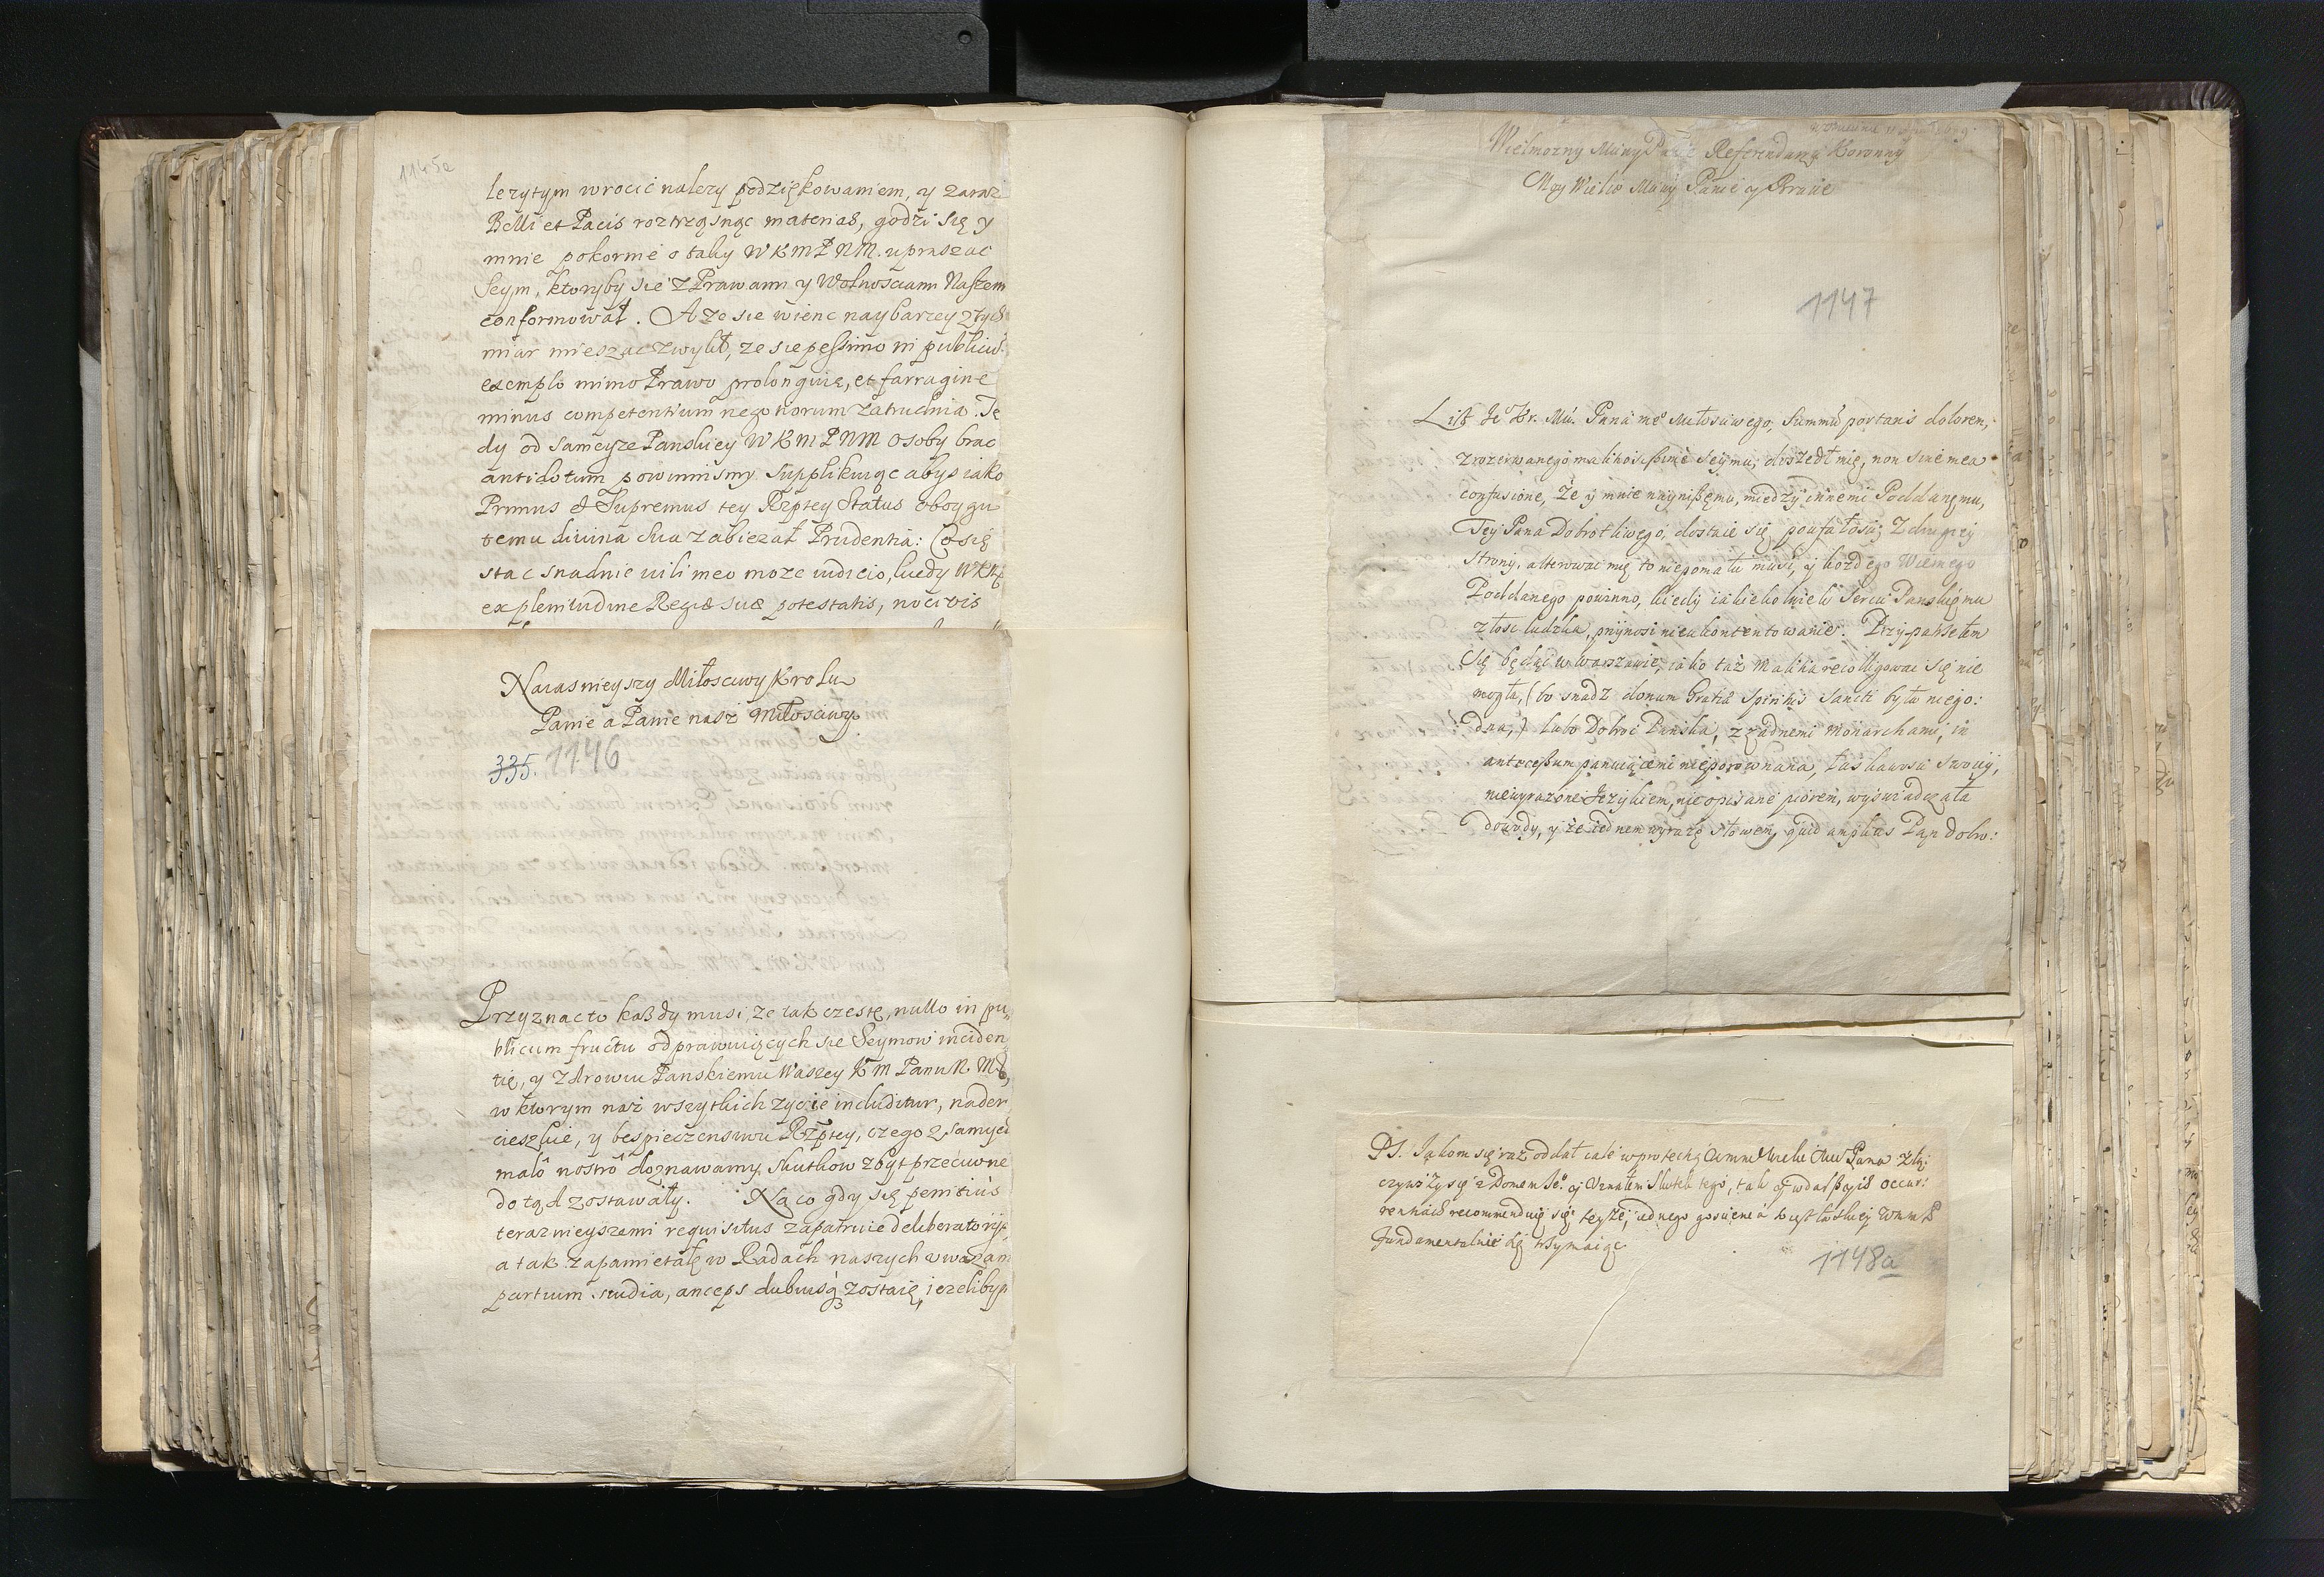 1145a
lezytym wrocić nalezy podziękowaniem, y zaraz
Belli et Pacis roztrząsnąc materias, godzi się y
mnie pokornie o taky WKMPNM. upraszac
Seym, ktoryby sie z Prawami y Wolnosciami Naszem
conformował. A ze sie wienc naybarzey z tych
miar mieszac zwykł, ze sie pessimo in publicu
exemplo mimo Prawo prolonguie, et farragine
minus competentium negotiorum zatrudnia. Te
dy od sameyze Panskiey WKMPNM osoby brac
antidotum powinnismy. Supplikuiąc abys iako
Primus et Supremus tey Rzptey Status oboygu
temu divina sua zabiezał Prudentia: Co się
stac snadnie vili meo moze iudicio, kiedy WKM
ex plenitudine Regiæ suæ potestatis, noci vis
Naiasnieyszy Miłosciwy Krolu
Panie a Panie nasz Miłosciwy
335. 1146
Przyznac to kazdy musi, ze tak częste, nullo in pu
blicum fructu odprawuiących sie Seymow inciden
tię, y Zdrowiu Panskiemu Waszey KM Panu N. M.
w ktorym nasz wszytkich zycie includitur, nader
cieszkie, y bespieczenstwu Rzptey, czego z samych
malo nostro doznawamy skutkow zbyt przeciwne
dotąd zostawały. Na co gdy się penitius
teraznieyszemi requisitus zapatruie deliberatorys,
a tak zapamiętałe w Radach naszych uwazam
partium studia, anceps dubiusq zostaię, iezeliby
Wielmozny Mciwy Panie Referendarzu Koronny
Moy Wielce Mciwy Panie y Bracie
1147
List Je° Kr. Mci. Pana me° Miłosciwego, summu portans dolorem,
z rozerwanego malitiosissime Seymu, doszedł mię, non sine mea
confusione, że y mnie nayniższemu, między innemi Poddanemu,
Tey Pana Dobrotliwego, dostaie się poufałosci; Z drugiey
strony, alterować mię to niepomału musi, y kożdego Wiernego
Poddanego powinno, kiedy iakiekolwiek Sercu Panskiemu
złosc ludzka, przynosi nieukontentowanie. Przypatrzełem
się będąc w Warszawie, iako taż malitia recolligowac się nie
mogła, (bo snadz donum Gratiæ Spiritus Sancti była niego:
dna,) lubo Dobroć Panska, z żadnemi Monarchami, in
antecessum panuiącemi nieporownana, łaskawosci swoiey,
niewyrażone Językiem, nie opisane piorem, wyswiadczała
dowody, y że iednem wyrażę słowem, quid amplius Pan Dobro:
PS. Jakom się raz oddał całe w protectią Wmm Wielce Mci Pana złą:
czywszy się z Domem Je° y Uznałem skutek tego, tak y w dalszych occur:
rentiach recommenduię się teyże, iednego gosciencà to iest łaskiey Wmm P.
fundamentalnie się trzymaiąc
1148a